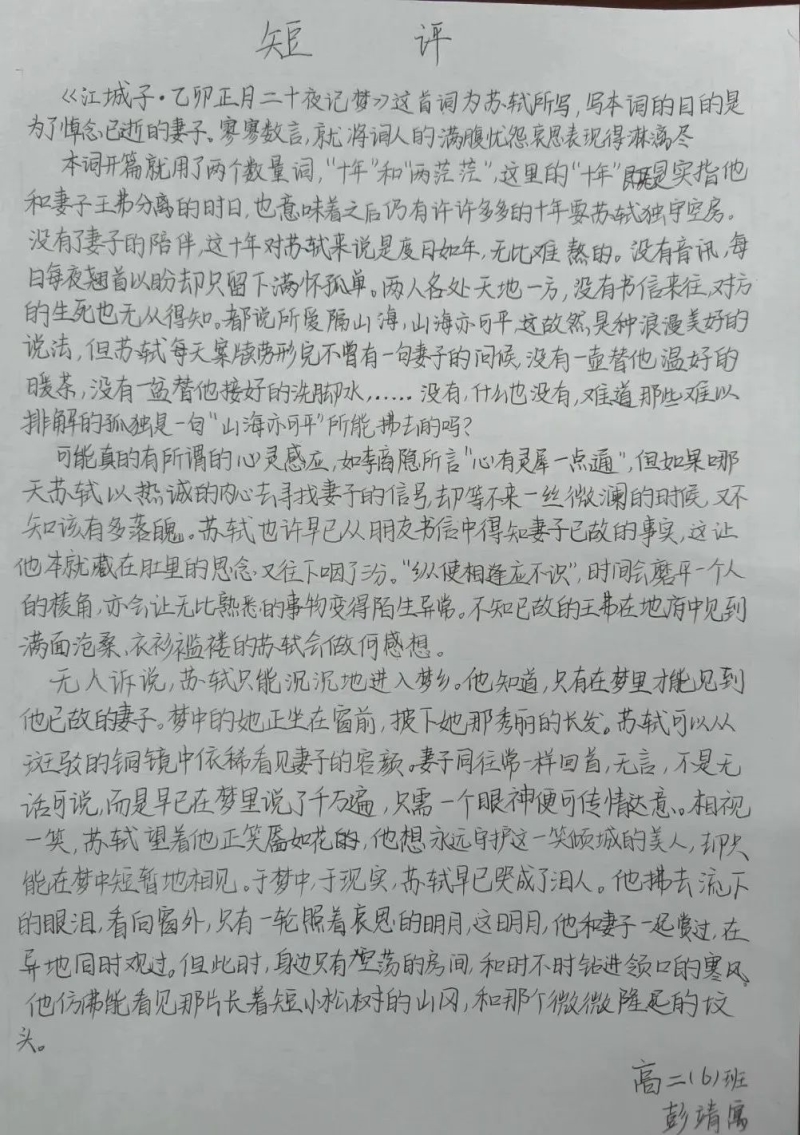 短 评
《江城子·乙卯正月二十夜记梦》这首词为苏轼所写,写本词的目的是
为了悼念已逝的妻子、寥寥数言,就将词人的满腹忧怨哀思表现得淋漓尽
本词开篇就用了两个数量词,"十年"和"两茫茫",这里的"十年"既是实指他
和妻子王弗分离的时日,也意味着之后仍有许许多多的十年要苏轼独守空房。
没有了妻子的陪伴,这十年对苏轼来说是度日如年,无比难熬的。没有音讯,每
日每夜翘首以盼却只留下满怀孤单。两人各处天地一方,没有书信来往,对方
的生死也无从得知。都说所爱隔山海,山海亦可平,这故然是种浪漫美好的
说法,但苏轼每天案牍劳形完不曾有一句妻子的问候,没有一壶替他温好的
暖茶,没有一盆替他接好的洗脚水,……没有,什么也没有,难道那些难以
排解的孤独是一句"山海亦可平"所能拂去的吗?
可能真的有所谓的心灵感应,如李商隐所言"心有灵犀一点通",但如果哪
天苏轼以热诚的内心去寻找妻子的信号,却等不来一丝微澜的时候,又不
知该有多落魄。苏轼也许早已从朋友书信中得知妻子已故的事实,这让
他本就藏在肚里的思念又往下咽了三分。"纵使相逢应不识",时间会磨平一个人
的棱角,亦会让无比熟悉的事物变得陌生异常。不知已故的王弗在地府中见到
满面沧桑、衣衫褴褛的苏轼会做何感想。
无人诉说,苏轼只能沉沉地进入梦乡。他知道,只有在梦里才能见到
他已故的妻子。梦中的她正坐在窗前,披下她那秀丽的长发。苏轼可以从
斑驳的铜镜中依稀看见妻子的容颜。妻子同往常一样回首,无言,不是无
话可说,而是早已在梦里说了千万遍,只需一个眼神便可传情达意。相视
一笑,苏轼望着他正笑靥如花的,他想永远守护这一笑倾城的美人,却只
能在梦中短暂地相见。于梦中,于现实,苏轼早已哭成了泪人。他拂去流下
的眼泪,看向窗外,只有一轮照着哀思的明月,这明月,他和妻子一起赏过,在
异地同时观过。但此时,身边只有空荡的房间,和时不时钻进领口的寒风,
他仿佛能看见那片长着短小松树的山冈,和那个微微隆起的坟
头。
高二(6)班
彭靖